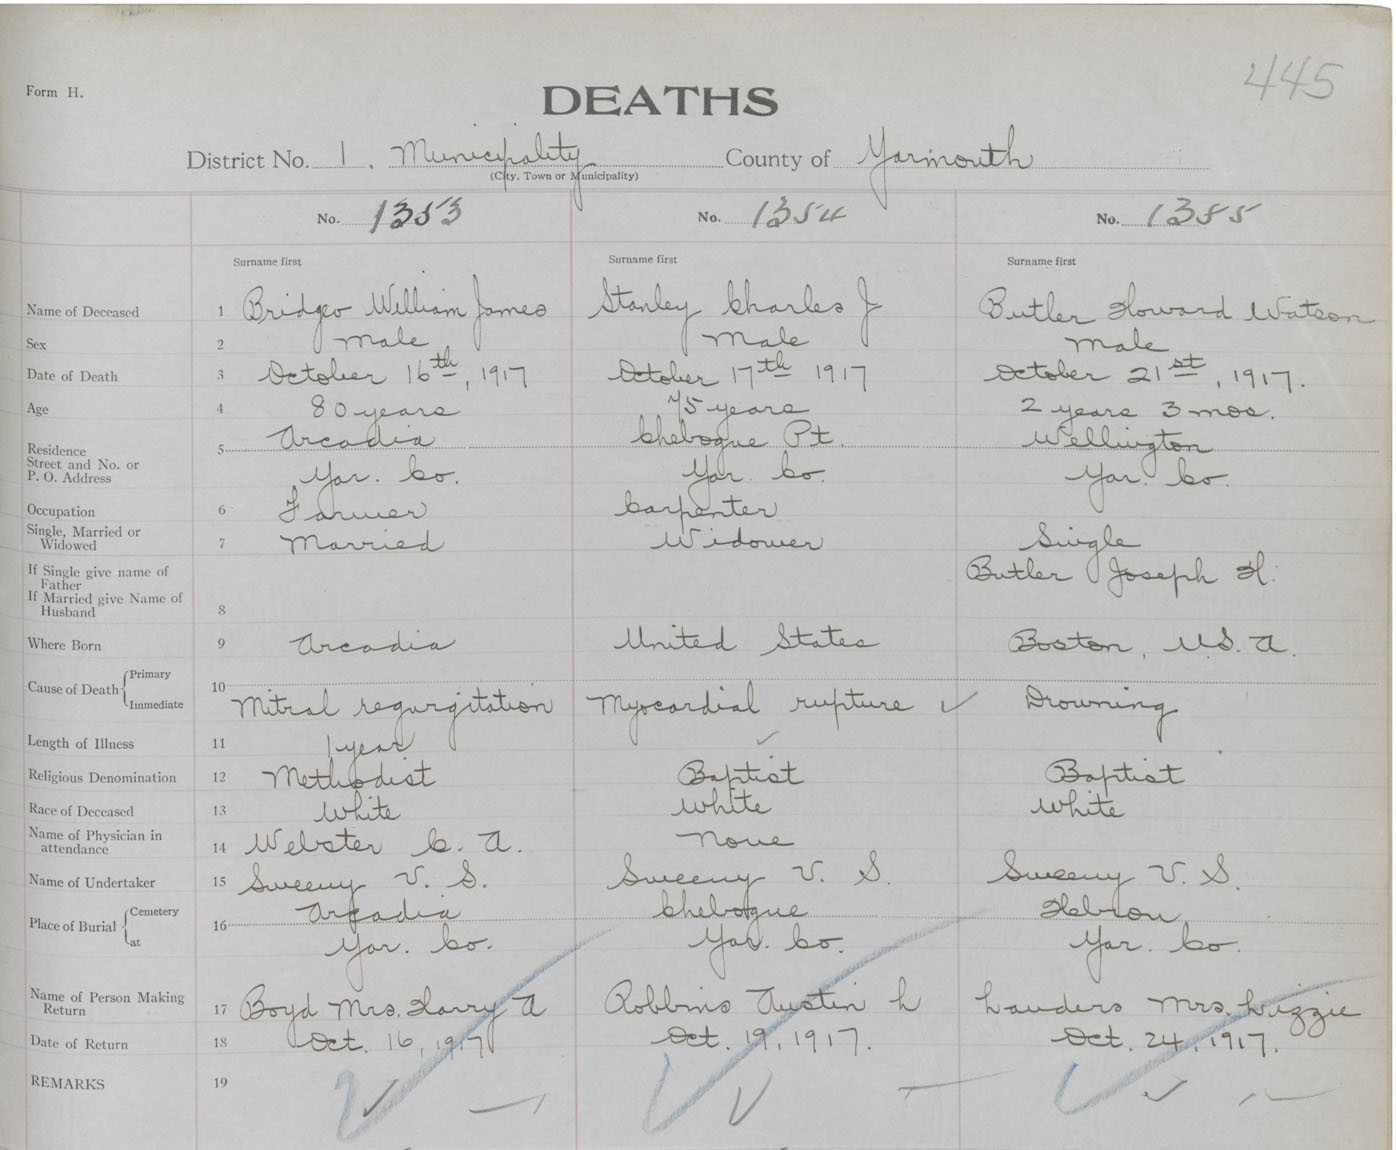 445
Form H.
DEATHS
District No. 1. Municipality County of Yarmouth
(City, Town or Municipality)
No. 1353 No. 1354 No. 1355
Surname first Surname first Surname first
Name of Deceased 1 Bridgeo William James Stanley Charles J Butler Howard Watson
Sex 2 Male Male Male
Date of Death 3 October 16th, 1917 October 17th 1917 October 21st, 1917.
Age 4 80 years 75 years 2 years 3 mos.
Residence 5 Arcadia Chebogue Pt. Wellington
Street and No. or
P. O. Address Yar. Co. Yar. Co. Yar. Co.
Occupation 6 Farmer Carpenter
Single, Married or
Widowed 7 Married Widower Single
If Single give name of
Father Butler Joseph H.
If Married give Name of
Husband 8
Where Born 9 Arcadia United States Boston, U.S.A.
Cause of Death Primary 10
Immediate Mitral regurgitation Myocardial rupture ✓ Drowning
Length of Illness 11 1 year ✓
Religious Denomination 12 Methodist Baptist Baptist
Race of Deceased 13 White White White
Name of Physician in
attendance 14 Webster C. A. None
Name of Undertaker 15 Sweeny V. S. Sweeny V. S. Sweeny V. S.
Place of Burial Cemetery 16 Arcadia Chebogue Hebron
at Yar. Co. Yar. Co. Yar. Co.
Name of Person Making
Return 17 Boyd Mrs. Harry A Robbins Austin L Landers Mrs. Lizzie
Date of Return 18 Oct. 16, 1917 Oct. 19, 1917. Oct. 24, 1917.
REMARKS 19